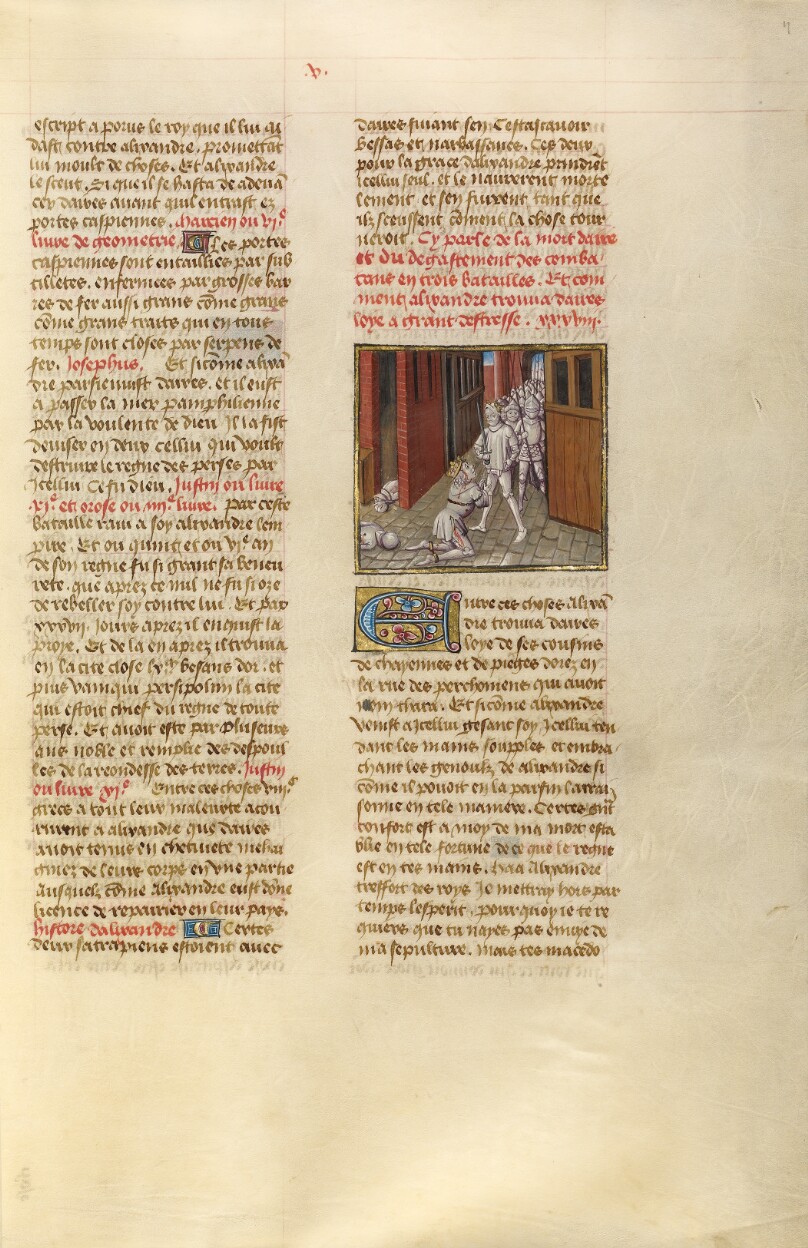 .v.
escript a porus le roy que il lui ai
dast contre alixandre. promettāt
lui moult de choses. Et alixandre
le sceut. Si que il se hasta de adeuā
cer daires auant quil entrast ez
portes caspiennes. Marcien ou vi.e
liure de geometrie. Les portes
caspiennes sont entaillies par sub
tilletez. enfermees par grosses bar
res de fer aussi grans cōme grans
cōme grans traits qui en tous
temps sont closes par serpens de
fer. Josephus. Et sicōme alixā
dre parsieuuist daires. et il eust
a passer la mer pamphilienne
par la voulente de dieu Il la fist
deuiser en deux cellui qui voult
destruire le regne des perses par
icellui Ce fu dieu. Justin ou liure
xi.e et orose ou iii.e liure. par ceste
bataille raui a soy alixandre lem
pire. Et ou quint et ou vi.e an
de son regne fu si grant sa beneu
rete. que aprez ce nul ne fu si oze
de rebeller soy contre lui. Et par
xxxvii. iours aprez il enquist la
proye. Et de la en aprez il trouua
en la cite close besans dor. et
puis vainqui persipolin la cite
qui estoit chief du regne de toute
perse. Et auoit este par pluseurs
ans noble et remplie des despoul
les de la reondesse des terres. Justin
ou liure xi.e Entre ces choses viii.c
grecs a tout leur maleurte acou
rurent a alixandre que daires
auoit tenus en chetiuete mehai
gniez de leurs corps en vne partie
ausquelz cōme alixandre eust dōne
licence de repairier en leur pays.
histore dalixandre Certes
deux satrapiens estoient auec
daires fuiant sen Cestassauoir
bessas et narbassanes. Ces deux
pour la grace dalixandre prindrēt
icellui seul. et le naurerent morte
lement et sen fuirent tant que
ilz sceussent cōment la chose tour
neroit. Cy parle de la mort daire
et du degastement des comba
tans en trois batailles. Et com
ment alixandre trouua daires
loye a grant destresse. xxxviii.
Entre ces choses alixā
dre trouua daires
loye de ses cousins
de chayennes et de pieges dorez en
la rue des perchemens qui auoit
nom thara. Et sicōme alixandre
venist a icellui gesant soy Icellui ten
dant les mains souples et embra
chant les genoulz de alixandre si
cōme il pouoit en la parfin larrai
sonne en tele maniere. Certes grāt
confort est a moy de ma mort esta
blie en tele fortune de ce que le regne
est en tes mains. Haa alixandre
tressort des roys Je mettray hors par
temps lesperit. pour quoy ie te re
quiers que tu nayes pas enuye de
ma sepulture. mais tes macedo